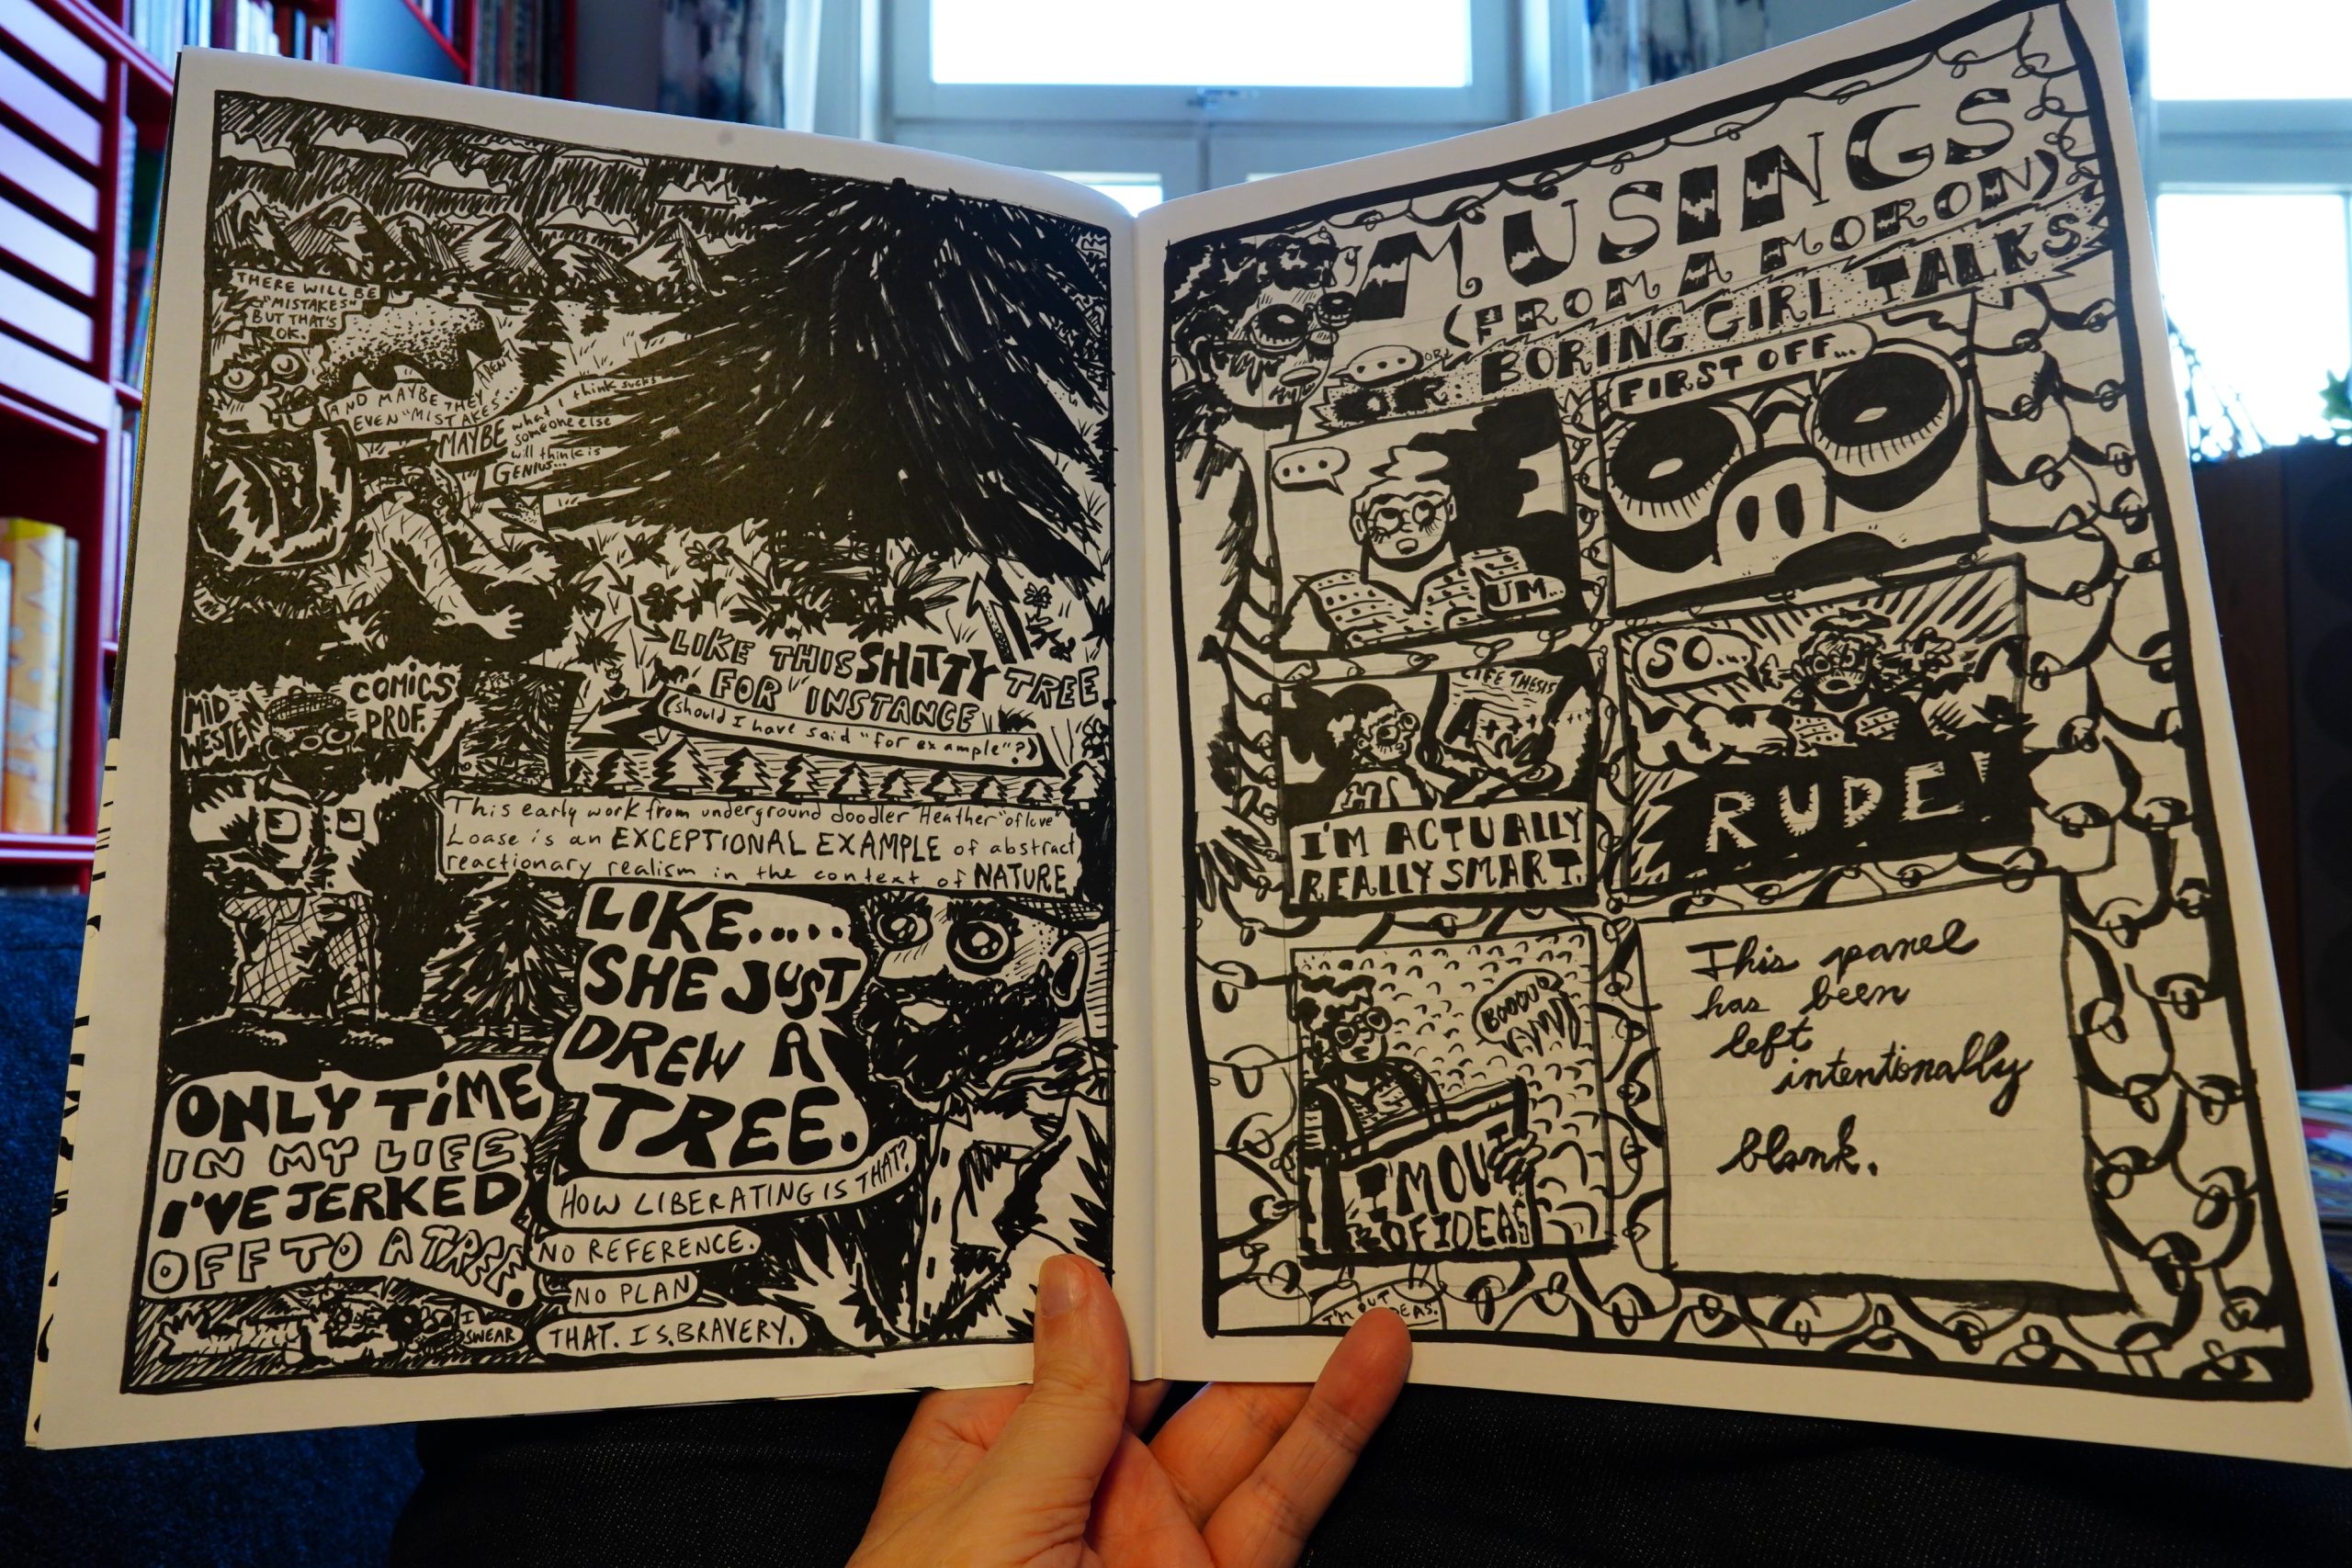 THERE WILL BE
"MISTAKES"
BUT THAT'S
OK.
AND MAYBE THEY AREN'T
EVEN "MISTAKES"...
MAYBE what I think sucks
someone else
will think is
GENIUS...
LIKE THIS SHITTY TREE
FOR "INSTANCE
(should I have said "for example"?)
MID
WESTERN
COMICS
PROF.
This early work from underground doodler Heather "of love"
Loase is an EXCEPTIONAL EXAMPLE of abstract
reactionary realism in the context of NATURE
LIKE.....
SHE JUST
DREW A
TREE.
HOW LIBERATING IS THAT?
NO REFERENCE.
NO PLAN
THAT. IS. BRAVERY.
ONLY TIME
IN MY LIFE
I'VE JERKED
OFF TO A TREE.
I
SWEAR
MUSINGS
(FROM A MORON)
OR: BORING GIRL TALKS
...
OR:
...
UM...
FIRST OFF...
LIFE THESIS
A+++
I'M ACTUALLY
REALLY SMART.
SO...
RUDE!
BOOOOO
I'M OUT
OF IDEAS
This panel
has been
left
intentionally
blank.
I'M OUT
IDEAS.